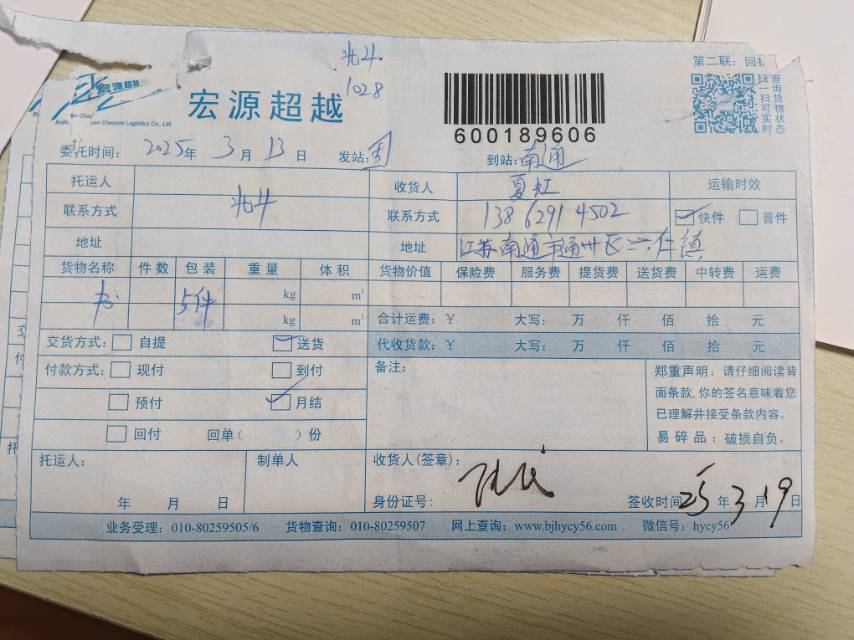 北斗
1028
第二联:回执
宏源超越
宏源超越
600189606
扫一扫可实时
查询货物状态
委托时间: 2025年 3月 13日 发站: 到站: 南通
托运人 收货人 夏红 运输时效
联系方式 北斗 联系方式 13862914502 快件 普件
地址 地址 江苏南通市通州区二仁镇
货物名称 件数 包装 重量 体积 货物价值 保险费 服务费 提货费 送货费 中转费 运费
书 5件 kg m³
kg m³ 合计运费:¥ 大写: 万 仟 佰 拾 元
交货方式: 自提 送货 代收货款:¥ 大写: 万 仟 佰 拾 元
付款方式: 现付 到付 备注:
预付 月结
回付 回单( )份
郑重声明:请仔细阅读背
面条款,你的签名意味着您
已理解并接受条款内容。
易碎品:破损自负。
托运人: 制单人 收货人(签章):
年 月 日 身份证号: 签收时间 25年 3月 19日
业务受理:010-80259505/6 货物查询:010-80259507 网上查询:www.bjhycy56.com 微信号:hycy56